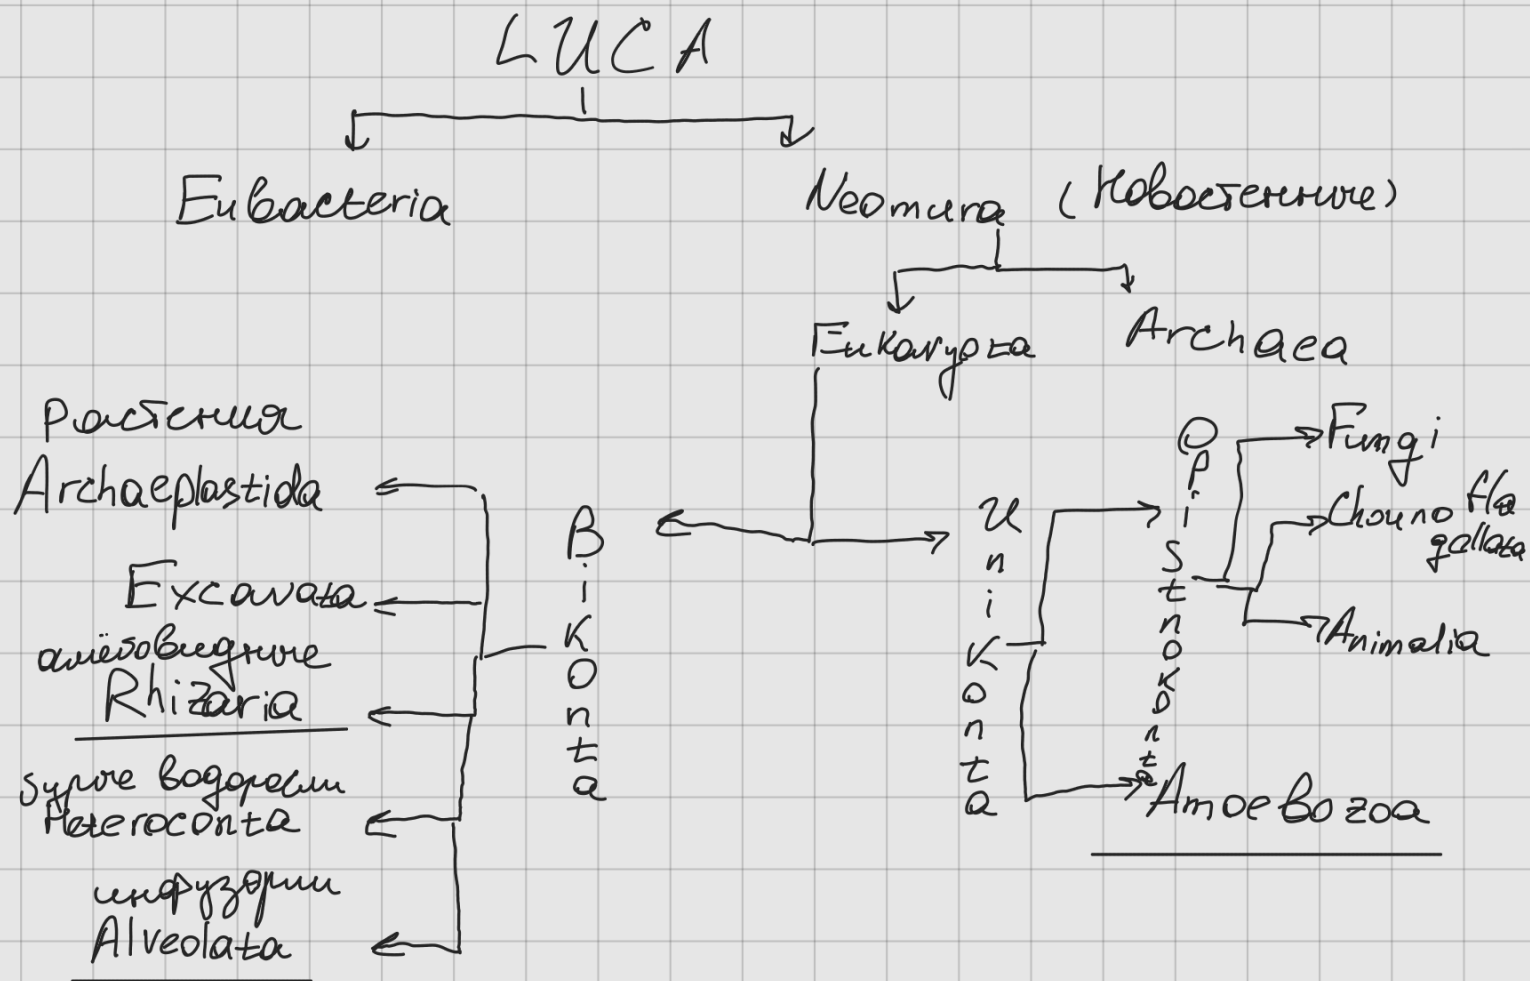 LUCA
Eubacteria
Neomura (Новостенные)
Eukaryota
Archaea
Растения
Archaeplastida
Excavata
амёбовидные
Rhizaria
бурые водоросли
Heteroconta
инфузории
Alveolata
Bikonta
Unikonta
Opistnokonta
Fungi
Chouno fla
gellata
Animalia
Amoebozoa